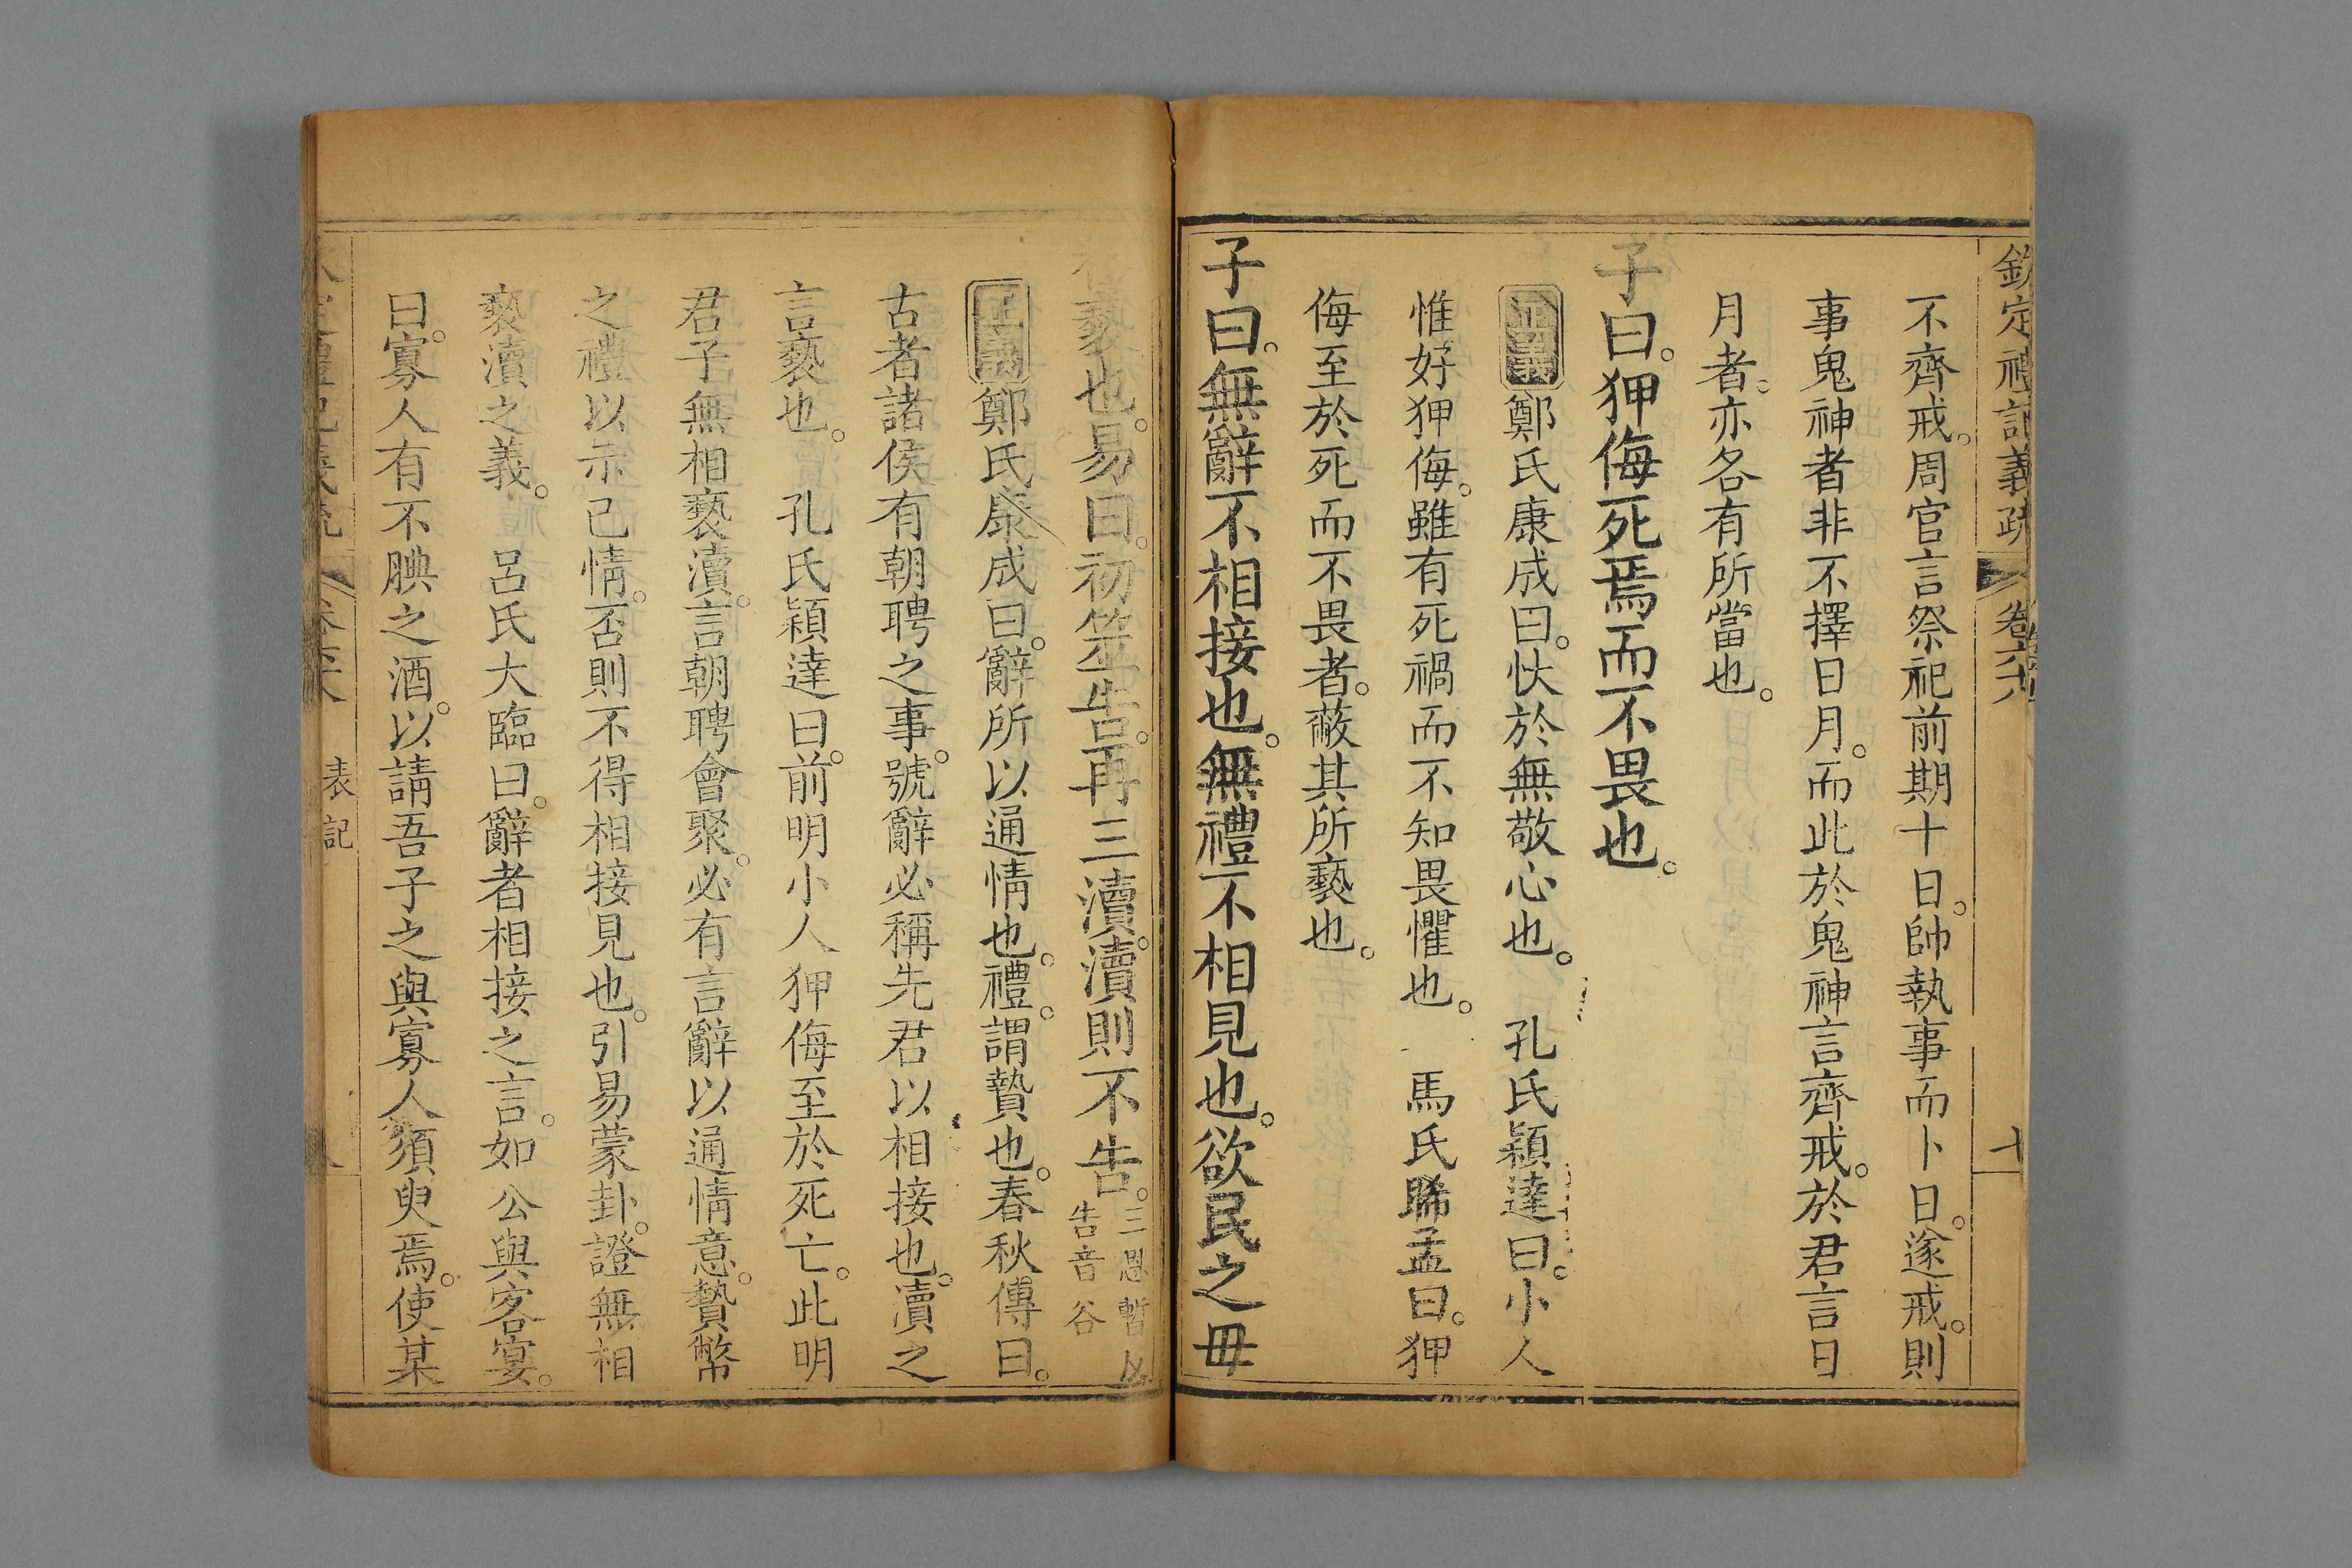 欽定禮記義疏 卷六十八 十
不齊戒。周官言祭祀前期十日。帥執事而卜日。遂戒。則
事鬼神者非不擇日月。而此於鬼神言齊戒。於君言日
月者。亦各有所當也。
子曰。狎侮死焉而不畏也。
正義鄭氏康成曰。忕於無敬心也。 孔氏穎達曰。小人
惟好狎侮。雖有死禍而不知畏懼也。 馬氏睎孟曰。狎
侮至於死而不畏者。蔽其所褻也。
子曰。無辭不相接也。無禮不相見也。欲民之毋
相褻也。易曰。初筮告。再三瀆。瀆則不告。三恩暫反
告音谷
正義鄭氏康成曰。辭所以通情也。禮。謂贄也。春秋傳曰。
古者諸侯有朝聘之事。號辭必稱先君以相接也。瀆之
言褻也。 孔氏穎達曰。前明小人狎侮至於死亡。此明
君子無相褻瀆。言朝聘會聚。必有言辭以通情意。贄幣
之禮以示己情。否則不得相接見也。引易蒙卦。證無相
褻瀆之義。 呂氏大臨曰。辭者相接之言。如公與客宴。
曰。寡人有不腆之酒。以請吾子之與寡人須臾焉。使某
表記